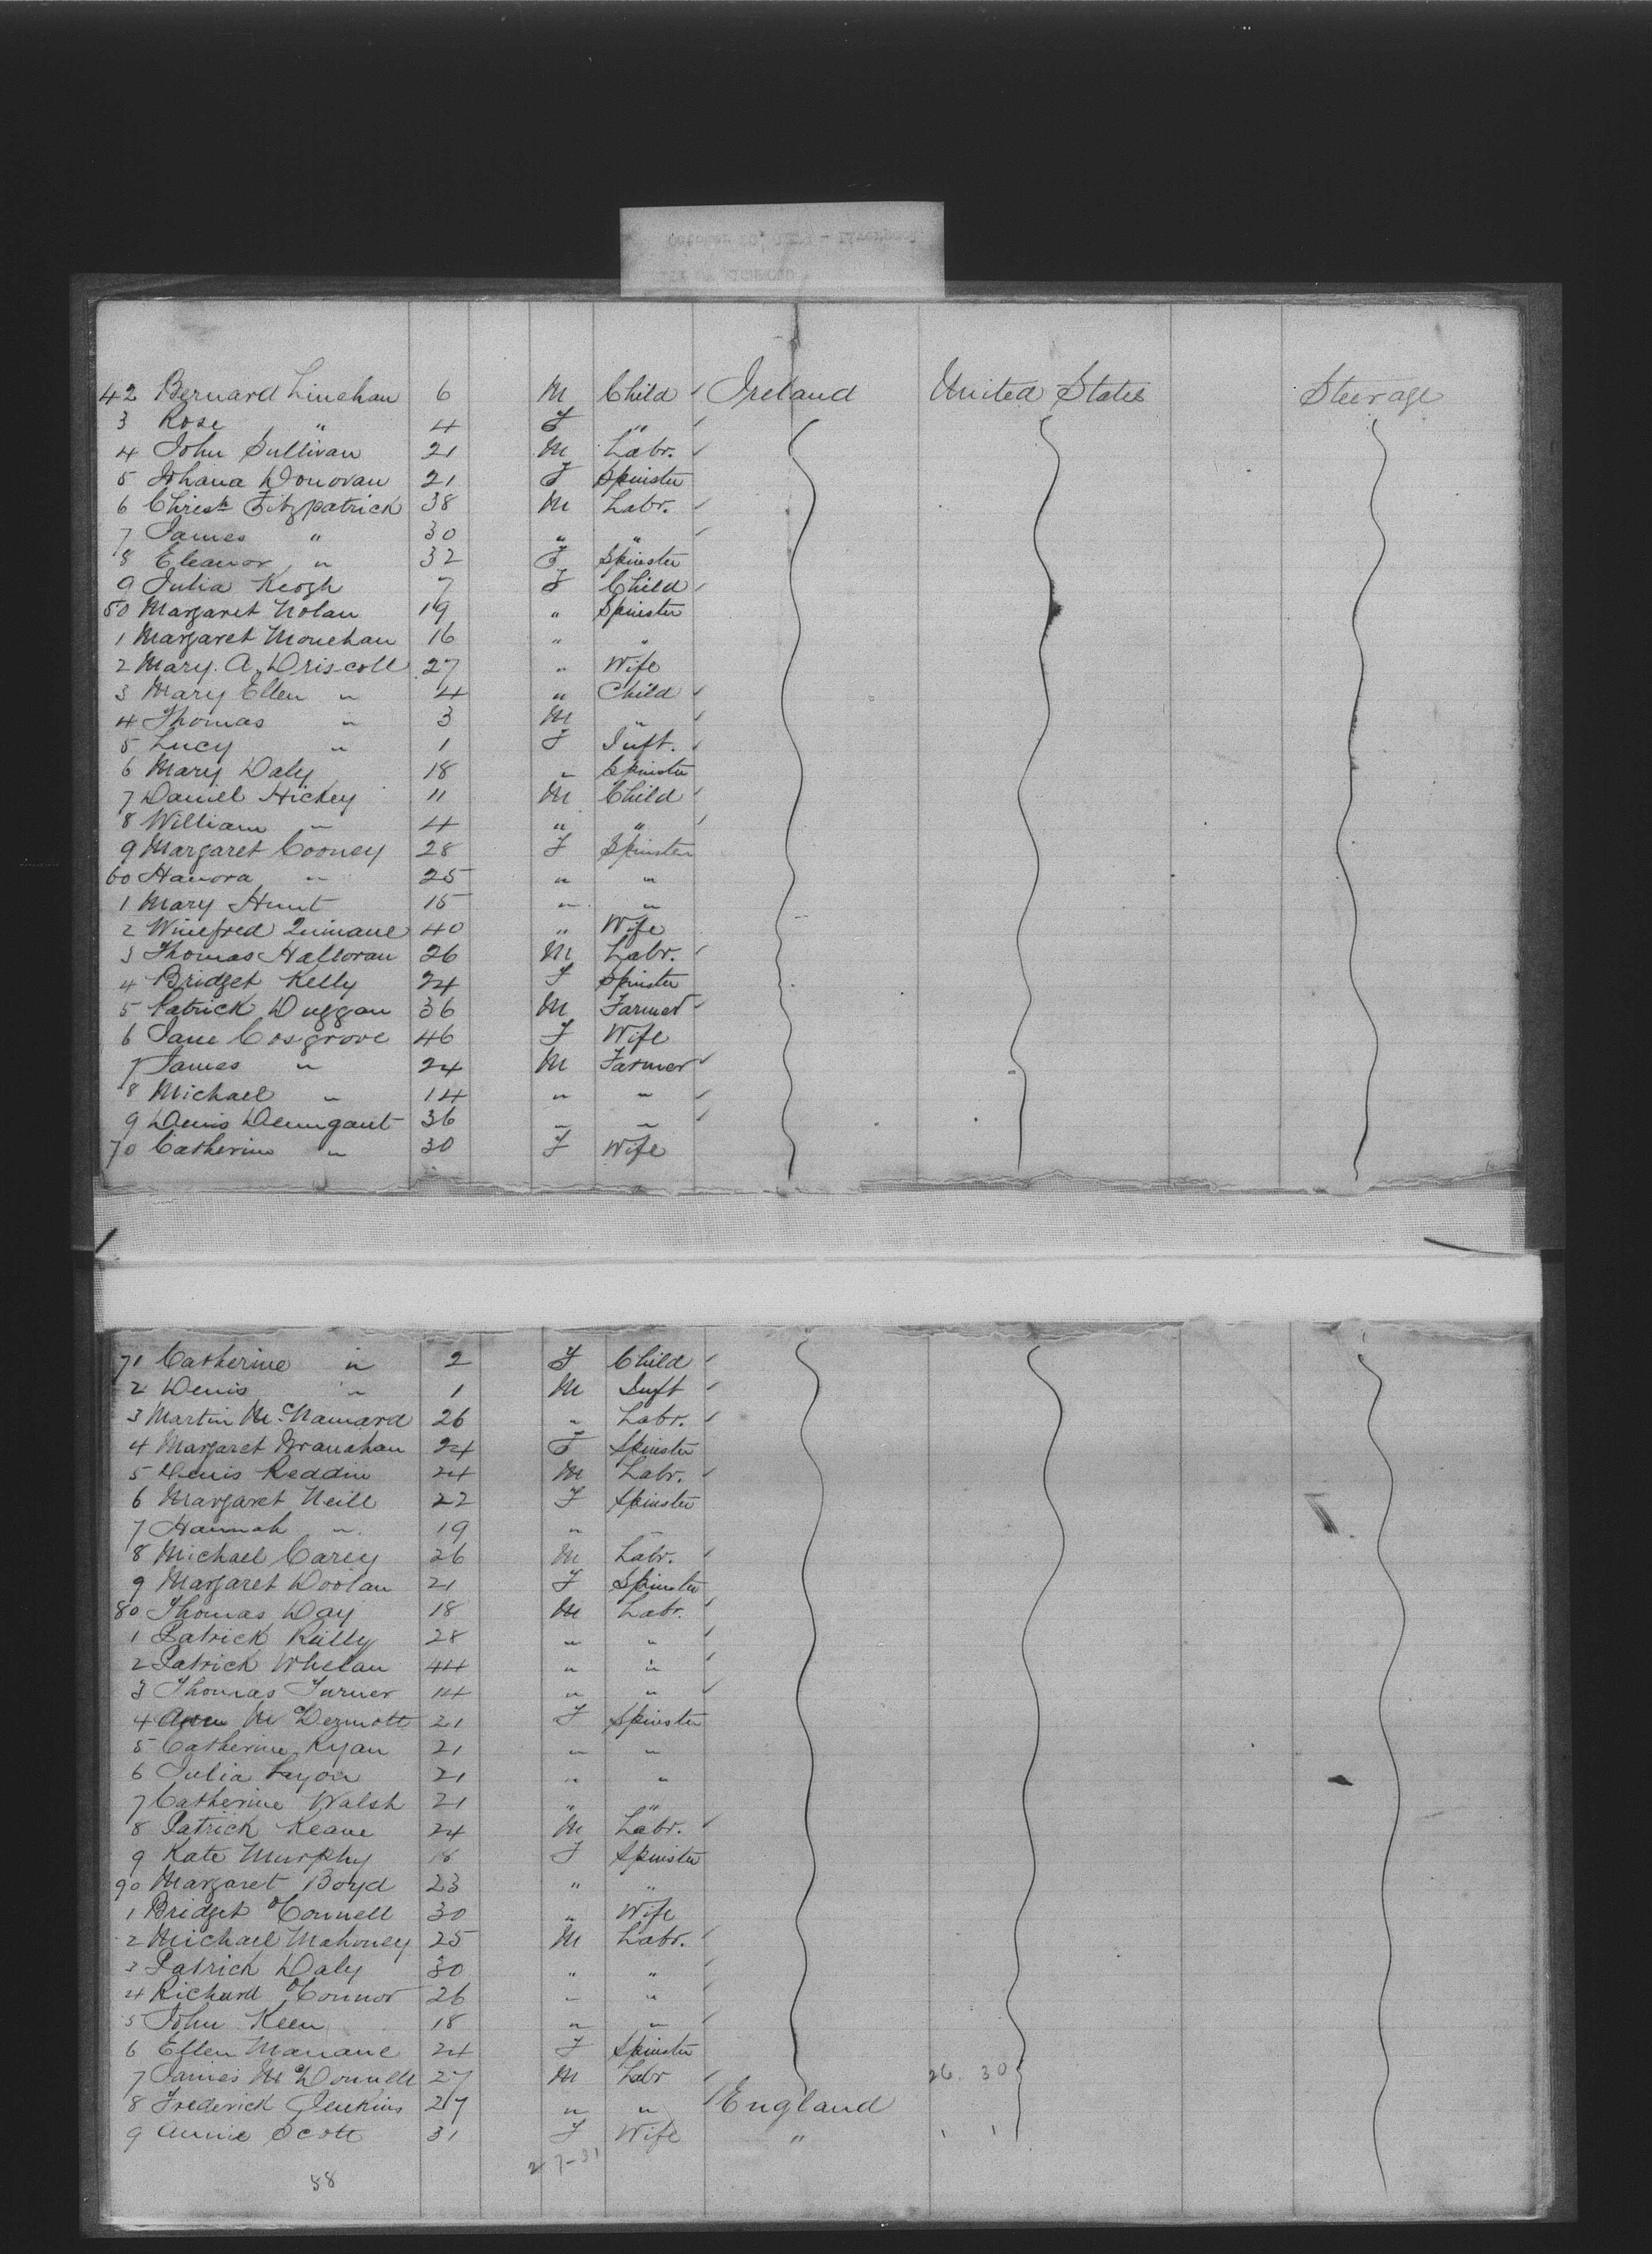 42 Bernard Linehan 6 M Child Ireland United States Steerage
3 Rose " 4 F "
4 John Sullivan 21 M Labr.
5 Johana Donovan 21 F Spinster
6 Christr Fitzpatrick 38 M Labr.
7 James " 30 " "
8 Eleanor " 32 F Spinster
9 Julia Keogh 7 F Child
50 Margaret Nolan 19 " Spinster
1 Margaret Monehan 16 " "
2 Mary. A. Driscoll 27 " Wife
3 Mary Ellen " 4 " Child
4 Thomas " 3 M "
5 Lucy " 1 F Inft.
6 Mary Daly 18 " Spinster
7 Daniel Hickey 11 M Child
8 William " 4 " "
9 Margaret Cooney 28 F Spinster
60 Hanora " 25 " "
1 Mary Hunt 15 " "
2 Winefred Quinane 40 " Wife
3 Thomas Halloran 26 M Labr.
4 Bridget Kelly 24 F Spinster
5 Patrick Duggan 36 M Farmer
6 Jane Cosgrove 46 F Wife
7 James " 24 M Farmer
8 Michael " 14 " "
9 Denis 36 " "
70 Catherine " 30 F Wife
71 Catherine " 2 F Child
2 Denis " 1 M Inft
3 Martin McNamara 26 " Labr.
4 Margaret Branahan 24 F Spinster
5 Denis Reddin 24 M Labr.
6 Margaret Neill 22 F Spinster
7 Hannah " 19 " "
8 Michael Carey 26 M Labr.
9 Margaret Doolan 21 F Spinster
80 Thomas Day 18 M Labr.
1 Patrick Reilly 28 " "
2 Patrick Whelan 44 " "
3 Thomas Turner 14 " "
4 Ann McDermott 21 F Spinster
5 Catherine Ryan 21 " "
6 Julia Lyon 21 " "
7 Catherine Walsh 21 " "
8 Patrick Keane 24 M Labr.
9 Kate Murphy 18 F Spinster
90 Margaret Boyd 23 " "
1 Bridget O'Connell 30 " Wife
2 Michael Mahoney 25 M Labr.
3 Patrick Daly 30 " "
4 Richard O'Connor 26 " "
5 John Keen 18 " "
6 Ellen Manane 24 F Spinster
7 James McDonnell 27 M Labr 26. 30
8 Frederick Jenkins 27 " " England
9 Annie Scott 31 F Wife "
27-31
58